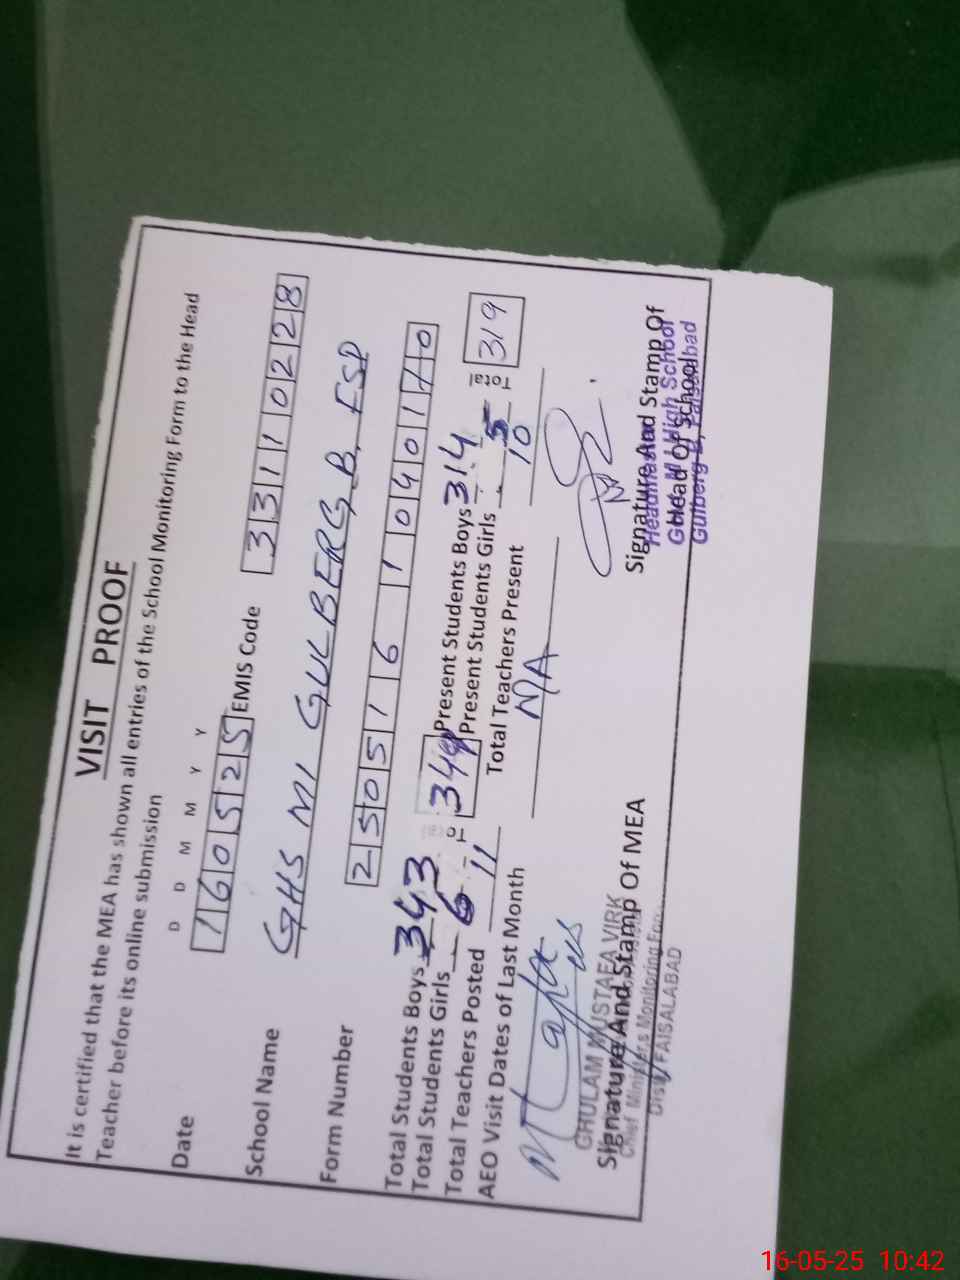 VISIT PROOF
It is certified that the MEA has shown all entries of the School Monitoring Form to the Head
Teacher before its online submission
D D M M Y Y
Date 160525 EMIS Code 33110228
School Name GHS MI GULBERG B. FSD
Form Number 2505161040110
Total Students Boys 343 Present Students Boys 314
Total Students Girls 6 349 Present Students Girls 5 Total 319
Total Teachers Posted 11 Total Teachers Present 10
AEO Visit Dates of Last Month N/A
GHULAM MUSTAFA VIRK
Signature And Stamp Of MEA
Chief Minister,s Monitoring Force
Distt. FAISALABAD
Signature And Stamp Of
Head Of School
Headmaster
Govt. M.I High School
Gulberg B, Faisalabad
16-05-25 10:42